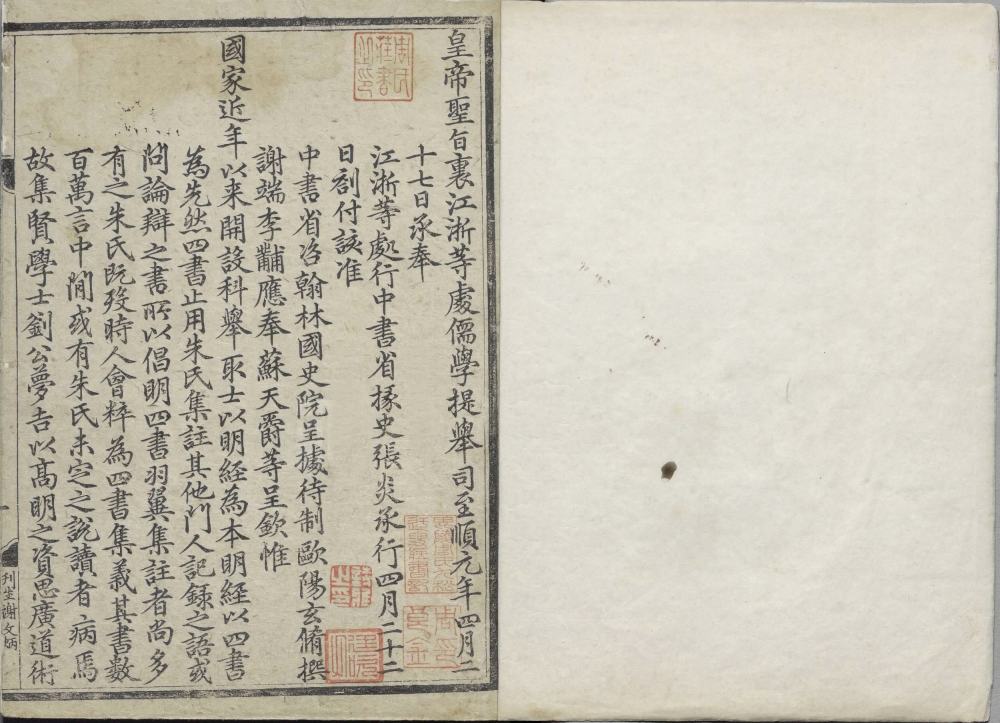 皇帝聖旨裏江淛等處儒學提舉司至順元年四月二
十七日承奉
江淛等處行中書省掾史張炎承行四月二十二
日劄付該准
中書省咨翰林國史院呈據待制歐陽玄脩撰
謝端李黼應奉蘇天爵等呈欽惟
國家近年以来開設科舉取士以明經為本明經以四書
為先然四書止用朱氏集註其他門人記録之語或
問論辯之書所以倡明四書羽翼集註者尚多
有之朱氏既殁時人會粹為四書集義其書數
百萬言中間或有朱氏未定之說讀者病焉
故集賢學士劉公夢吉以高明之資思廣道術
刋生謝文炳